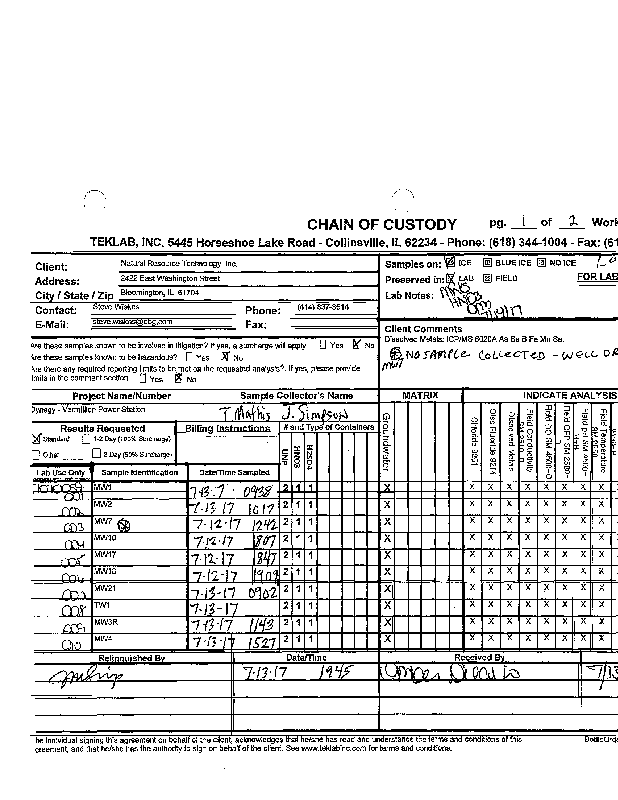 CHAIN OF CUSTODY pg. 1 of 2 Work
TEKLAB, INC. 5445 Horseshoe Lake Road - Collinsville, IL 62234 - Phone: (618) 344-1004 - Fax: (61
Client: Natural Resource Technology, Inc.
Address: 2422 East Washington Street
City / State / Zip Bloomington, IL 61704
Contact: Steve Wiskes Phone: (414) 837-3614
E-Mail: Fax:
Samples on: ICE BLUE ICE NO ICE
Preserved in: LAB FIELD FOR LAB
Lab Notes:
Client Comments
Dissolved Metals: ICP/MS 6020A As Ba B Fe Mn Se.
NO SAMPLE COLLECTED - WELL DR
Are these samples known to be involved in litigation? If yes, a surcharge will apply Yes X No
Are these samples known to be hazardous? Yes X No
Are there any required reporting limits to be met on the requested analysis?. If yes, please provide
limits in the comment section. Yes X No
Project Name/Number Sample Collector's Name
Dynegy - Vermilion Power Station T Mathis J. Simpson
MATRIX INDICATE ANALYSIS
Results Requested Billing Instructions # and Type of Containers
X Standard 1-2 Day (100% Surcharge)
Other 3 Day (50% Surcharge)
UNP
HNO3
H2SO4
Groundwater
Chloride 9251
Diss Fluoride 9214
Dissolved Metals
Field Conductivity
Field DO SM 4500-O
Field Temperature
Lab Use Only Sample Identification Date/Time Sampled
001 MW1 7-13-7 0938 2 1 1 X X X X X X X X X
002 MW2 7-13-17 1017 2 1 1 X X X X X X X X X
003 MW7 7-12-17 1242 2 1 1 X X X X X X X X X
004 MW10 7-12-17 1807 2 1 1 X X X X X X X X X
005 MW17 7-12-17 1847 2 1 1 X X X X X X X X X
006 7-12-17 1909 2 1 1 X X X X X X X X X
007 MW21 7-13-17 0902 2 1 1 X X X X X X X X X
008 TW1 7-13-17 2 1 1 X X X X X X X X X
009 MW3R 7-13-17 1143 2 1 1 X X X X X X X X X
010 MW4 7-13-17 1527 2 1 1 X X X X X X X X X
Relinquished By Date/Time Received By
7-13-17 1945 7/13
The individual signing this agreement on behalf of the client, acknowledges that he/she has read and understands the terms and conditions of this
greement, and that he/she has the authority to sign on behalf of the client. See www.teklabinc.com for terms and conditions.